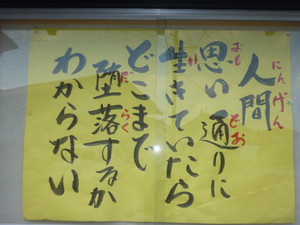 人間
思い通りに
生きていたら
どこまで
堕落するか
わからない
にんげん
おも
どお
い
だらく